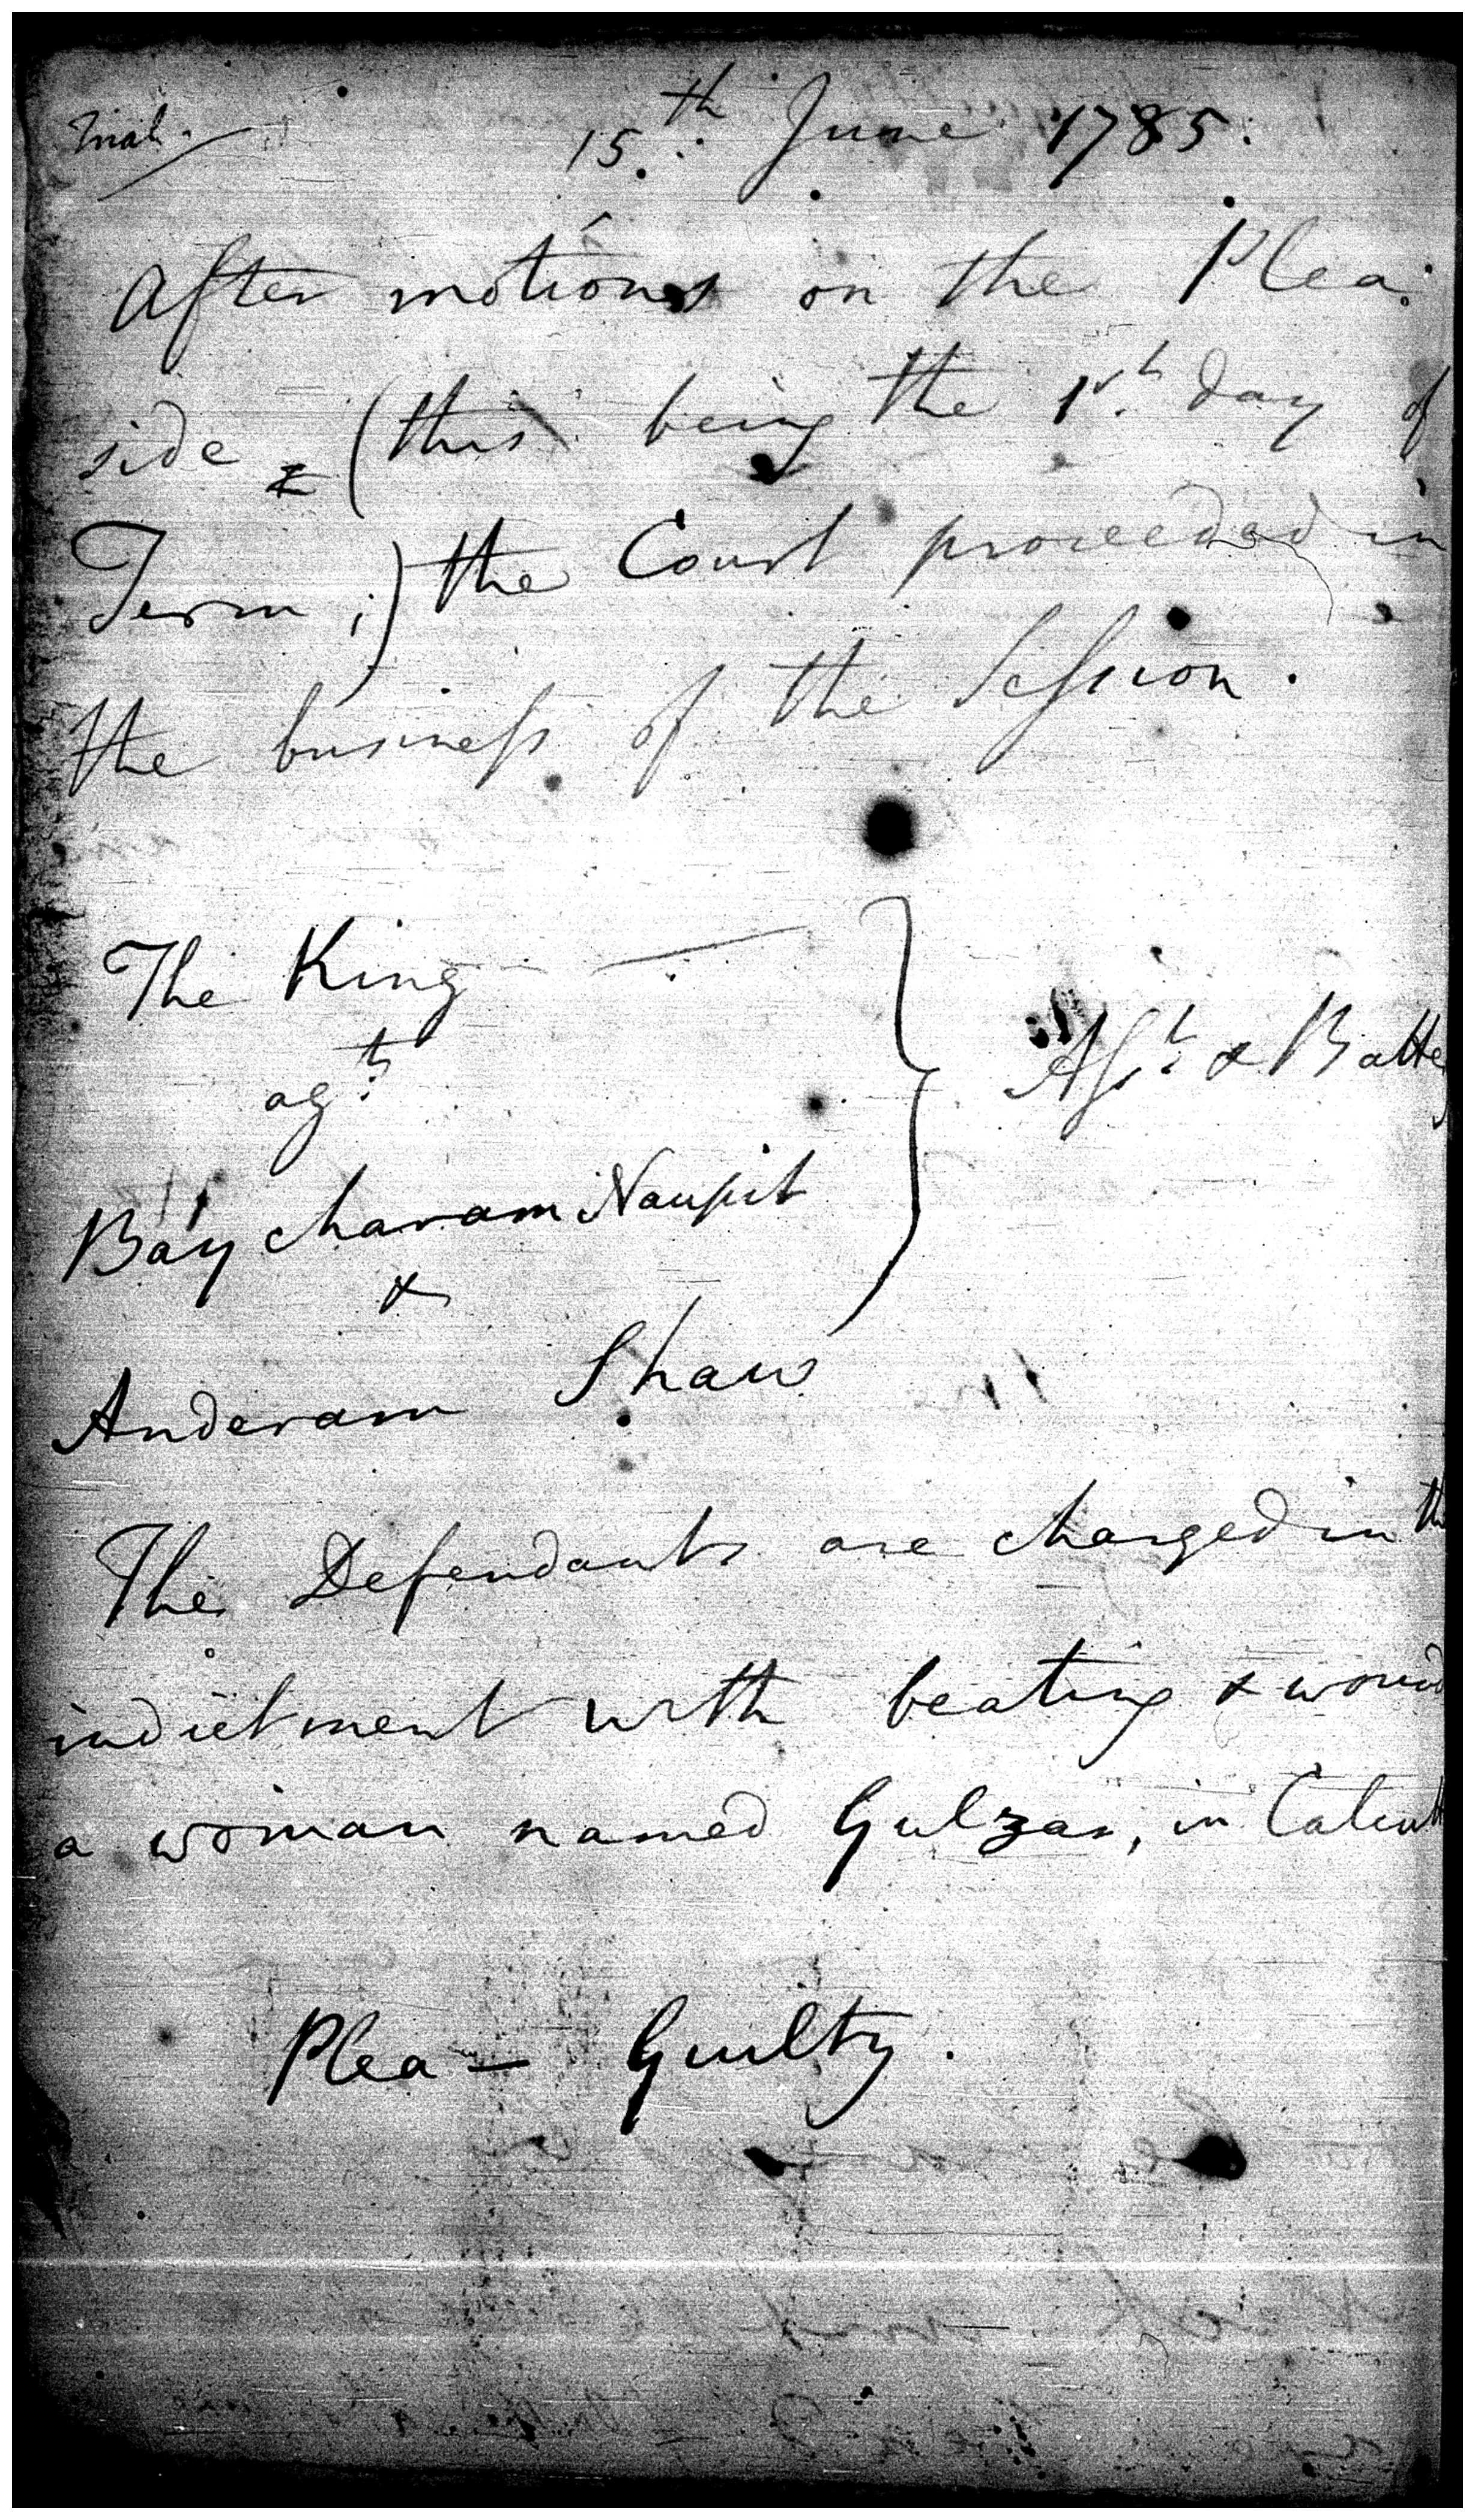 Trial.
15th June 1785.
After motions on the Plea
side (this being the 1st day of
Term;) the Court proceeded in
the business of the Session.
The King
agt
Baycharam Naupit
&
Anderam Shaw
Asst & Batte
The Defendants are charged in the
indictment with beating & wound
a woman named Gulzar, in Calcutt
Plea - Guilty.